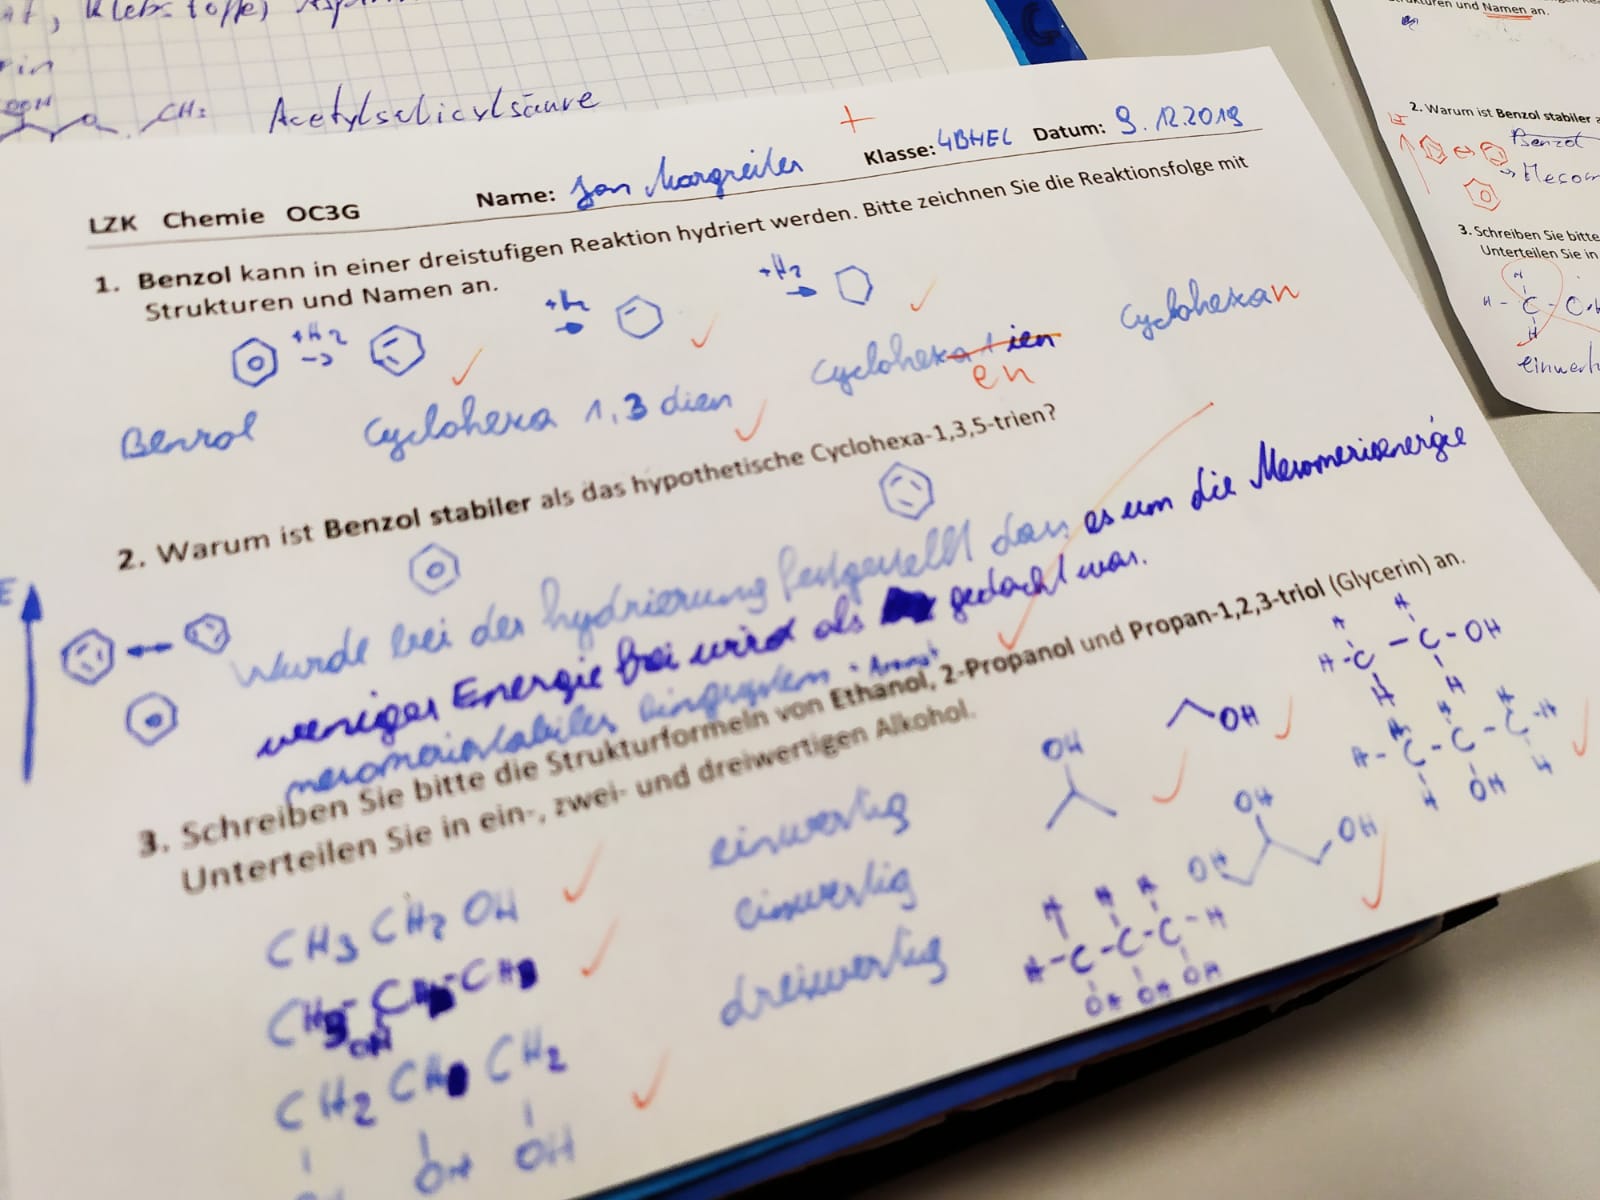 Klebstoffe,
rin
COOH
CH3 Acetylsalicylsäure
+
LZK Chemie OC3G Name: Jan Margreiter Klasse: 4BHEL Datum: 9.12.2019
1. Benzol kann in einer dreistufigen Reaktion hydriert werden. Bitte zeichnen Sie die Reaktionsfolge mit
Strukturen und Namen an.
+H2 → +H2 → +H2 →
Benzol Cyclohexa 1,3 dien Cyclohexa 1 ien Cyclohexan
en
2. Warum ist Benzol stabiler als das hypothetische Cyclohexa-1,3,5-trien?
E
Wurde bei der hydrierung festgestellt dass es um die Mesomerieenergie
weniger Energie frei wird als gedacht war.
mesomeriestabiles Ringsystem "Aromat"
3. Schreiben Sie bitte die Strukturformeln von Ethanol, 2-Propanol und Propan-1,2,3-triol (Glycerin) an.
Unterteilen Sie in ein-, zwei- und dreiwertigen Alkohol.
CH3 CH2 OH einwertig
CH3-CH-CH3 einwertig
OH
CH2 CH CH2 dreiwertig
OH OH
OH
H H
H-C-C-OH
H H
OH
H H H
H-C-C-C-H
H OH H
OH
OH OH
H H H
H-C-C-C-H
OH OH OH
Strukturen und Namen an.
2. Warum ist Benzol stabiler
Benzol
E
→ Mesom
3. Schreiben Sie bitte
Unterteilen Sie in
H
H-C-C-
H
einwert